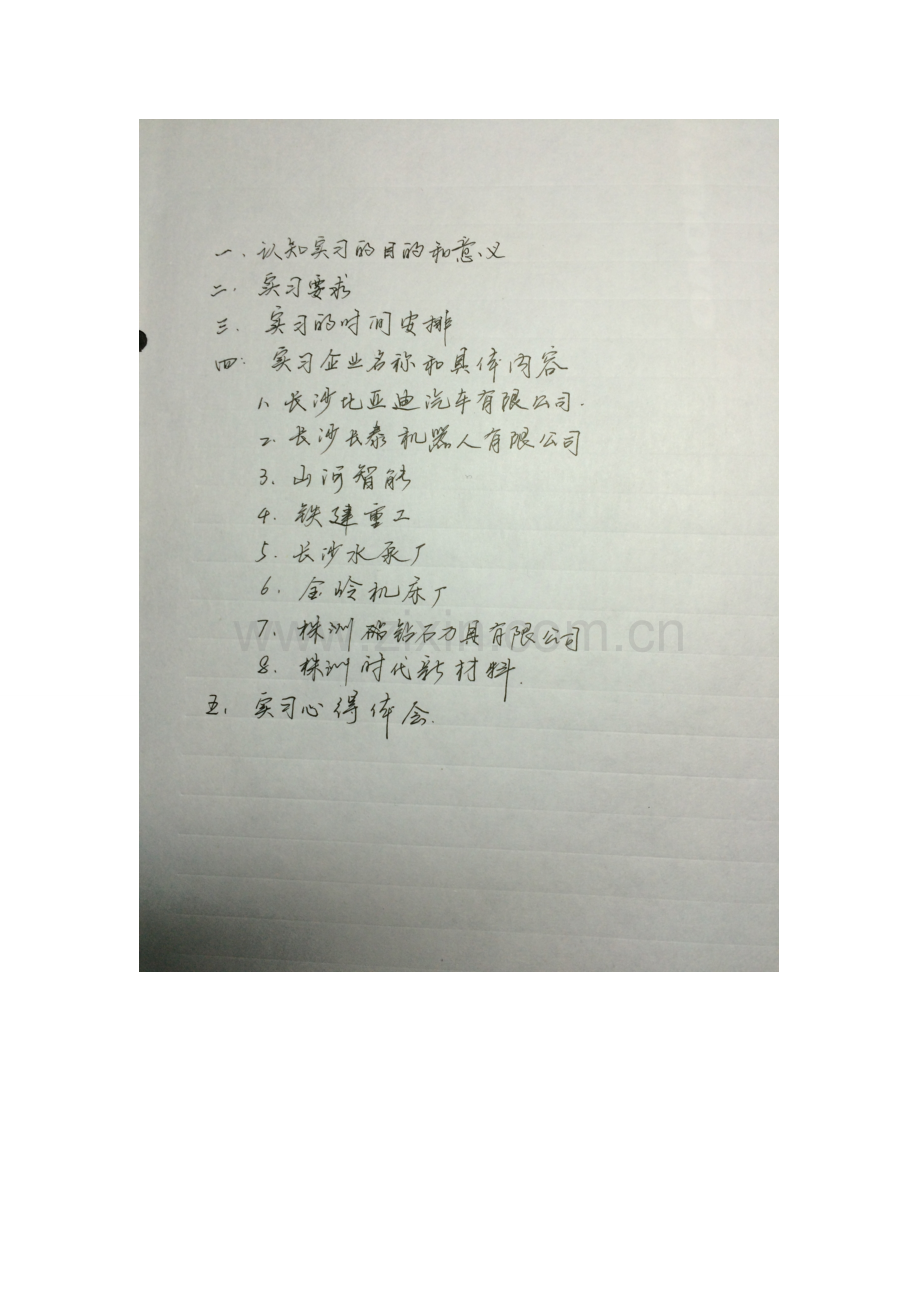 一、认知实习的目的和意义
二、实习要求
三、实习的时间安排
四、实习企业名称和具体内容
1、长沙比亚迪汽车有限公司.
2、长沙长泰机器人有限公司
3、山河智能
4、铁建重工
5、长沙水泵厂
6、金岭机床厂
7、株洲 钻石刀具有限公司
8、株洲时代新材料.
五、实习心得体会.
www.zixin.com.cn